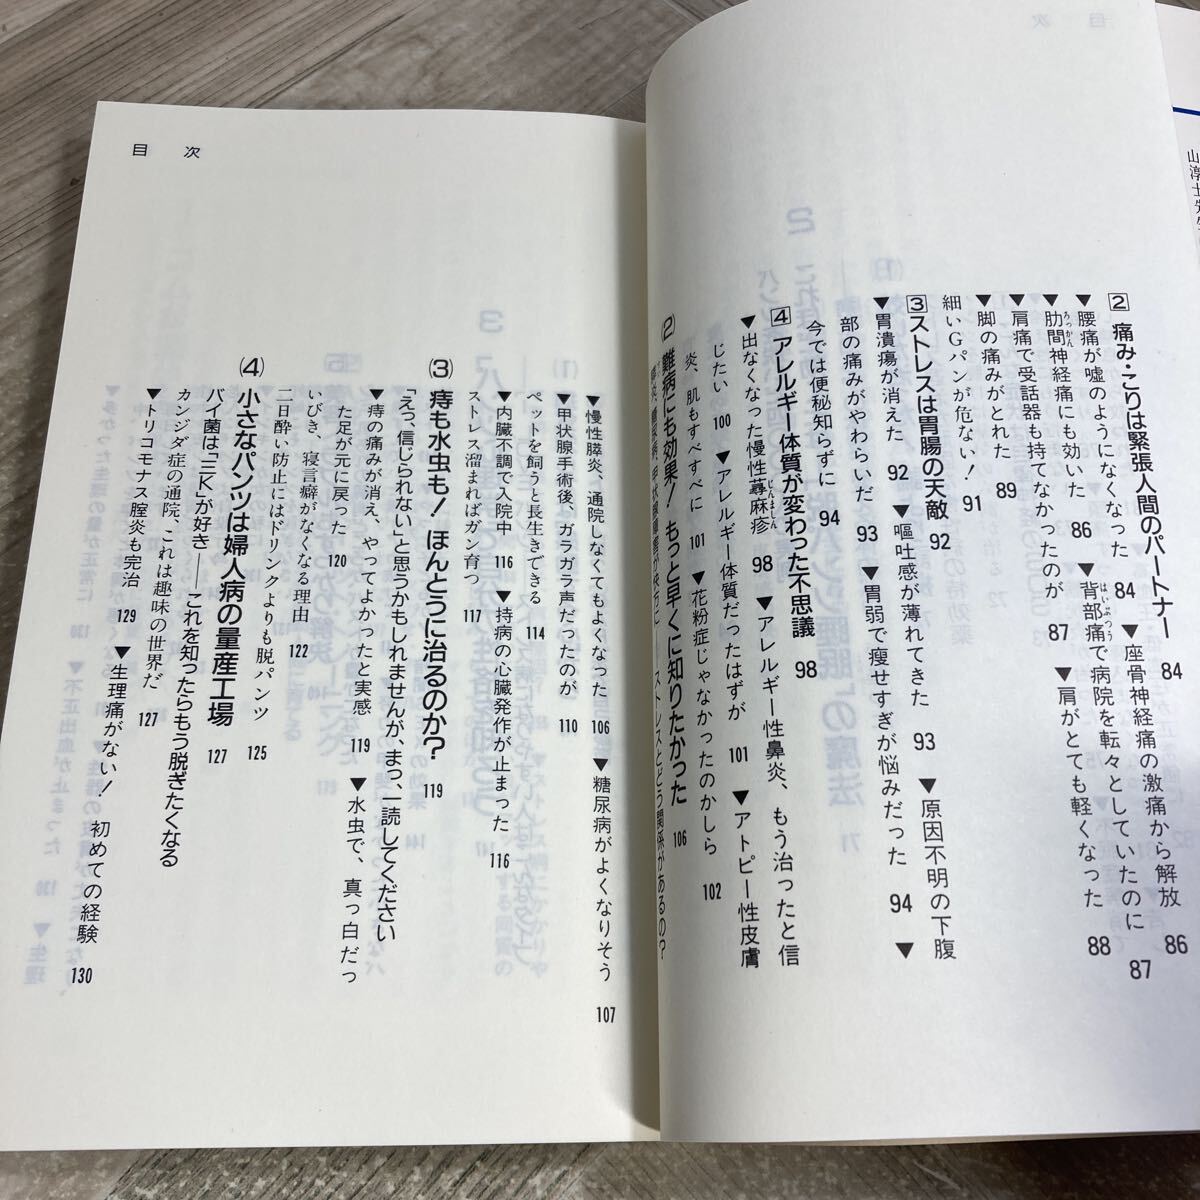 ② 痛み・こりは緊張人間のパートナー 84
▼腰痛が嘘のようになくなった 84 ▼座骨神経痛の激痛から解放 86
▼肋間神経痛にも効いた 86 ▼背部痛で病院を転々としていたのに 87
▼肩痛で受話器も持てなかったのが 87 ▼肩がとても軽くなった 88
▼脚の痛みがとれた 89
細いGパンが危ない! 91
③ ストレスは胃腸の天敵 92
▼胃潰瘍が消えた 92 ▼嘔吐感が薄れてきた 93 ▼原因不明の下腹
部の痛みがやわらいだ 93 ▼胃弱で痩せすぎが悩みだった 94 ▼
今では便秘知らずに 94
④ アレルギー体質が変わった不思議 98
▼出なくなった慢性蕁麻疹 98 ▼アレルギー性鼻炎、もう治ったと信
じたい 100 ▼アレルギー体質だったはずが 101 ▼アトピー性皮膚
炎、肌もすべすべに 101 ▼花粉症じゃなかったのかしら 102
(2) 難病にも効果! もっと早くに知りたかった 106
ストレスとどう関係があるの?
目 次
▼慢性膵炎、通院しなくてもよくなった 106 ▼糖尿病がよくなりそう 107
▼甲状腺手術後、ガラガラ声だったのが 110
ペットを飼うと長生きできる 114
▼内臓不調で入院中 116 ▼持病の心臓発作が止まった 116
ストレス溜まればガン育つ 117
(3) 痔も水虫も! ほんとうに治るのか? 119
「えっ、信じられない」と思うかもしれませんが、まっ、一読してください
▼痔の痛みが消え、やってよかったと実感 119 ▼水虫で、真っ白だっ
た足が元に戻った 120
いびき、寝言癖がなくなる理由 122
二日酔い防止にはドリンクよりも脱パンツ 125
(4) 小さなパンツは婦人病の量産工場 127
バイ菌は「三K」が好き――これを知ったらもう脱ぎたくなる
カンジダ症の通院、これは趣味の世界だ 127
▼トリコモナス腟炎も完治 129 ▼生理痛がない! 初めての経験 130